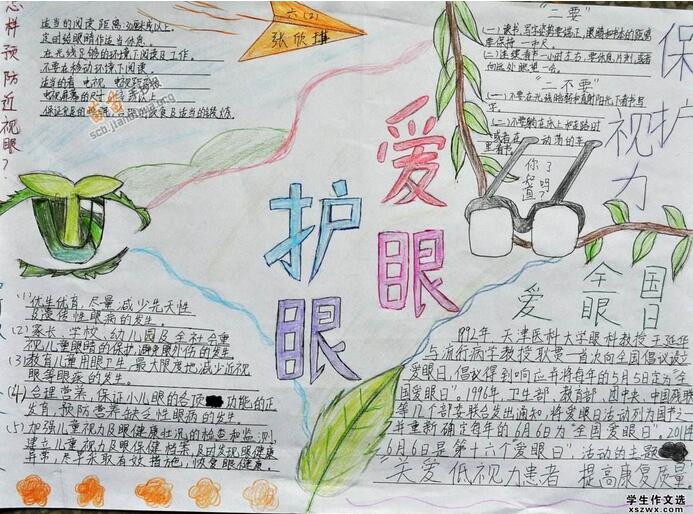 怎样预防近视眼？
适当的阅读距离:30厘米以上。
定时给眼睛作适当休息。
在光线足够的环境下阅读及工作。
不要在移动环境下阅读。
六(2)
张欣
"二要"
(一)读书、写字姿势要端正,眼睛和书本的距离
要保持一市尺。
(二)连续看书一小时左右,要休息片刻,或者
向远处眺望一会。
"二不要"
(一)不要在光线暗弱和直射阳光下看书写
字。
(二)不要躺在床上和走路时
或者在
动荡的车
里看书
你了
知道吗?
保护视力
爱眼
护眼
(1)优生优育,尽量减少先天性
及遗传性眼病的发生。
(2)家长、学校、幼儿园及全社会重
视儿童眼睛的保护,避免眼外伤的发生
(3)教育儿童用眼卫生,最大限度地减少近视
眼等眼病的发生。
(4)合理营养,保证小儿眼的各项功能的正
发育,预防营养缺乏性眼病的发生。
(5)加强儿童视力及眼保健状况的检查和监测,
建立儿童视力及眼保健档案,及时发现眼健康
异常,尽早采取有效措施,恢复眼健康。
全国
爱眼日
1992年,天津医科大学眼科教授王延华
与流行病学教授耿贯一首次向全国倡议设立
爱眼日,倡议得到响应并将每年的5月5日定为"全
国爱眼日"。1996年,卫生部、教育部、团中央、中国残联
等几个部委联合发出通知,将爱眼日活动列为国
并重新确定每年的6月6日为"全国爱眼日"。2011
6月6日是第十六个"爱眼日"。活动的主题
"关爱低视力患者 提高康复质量。
学生作文选
xszwx.com